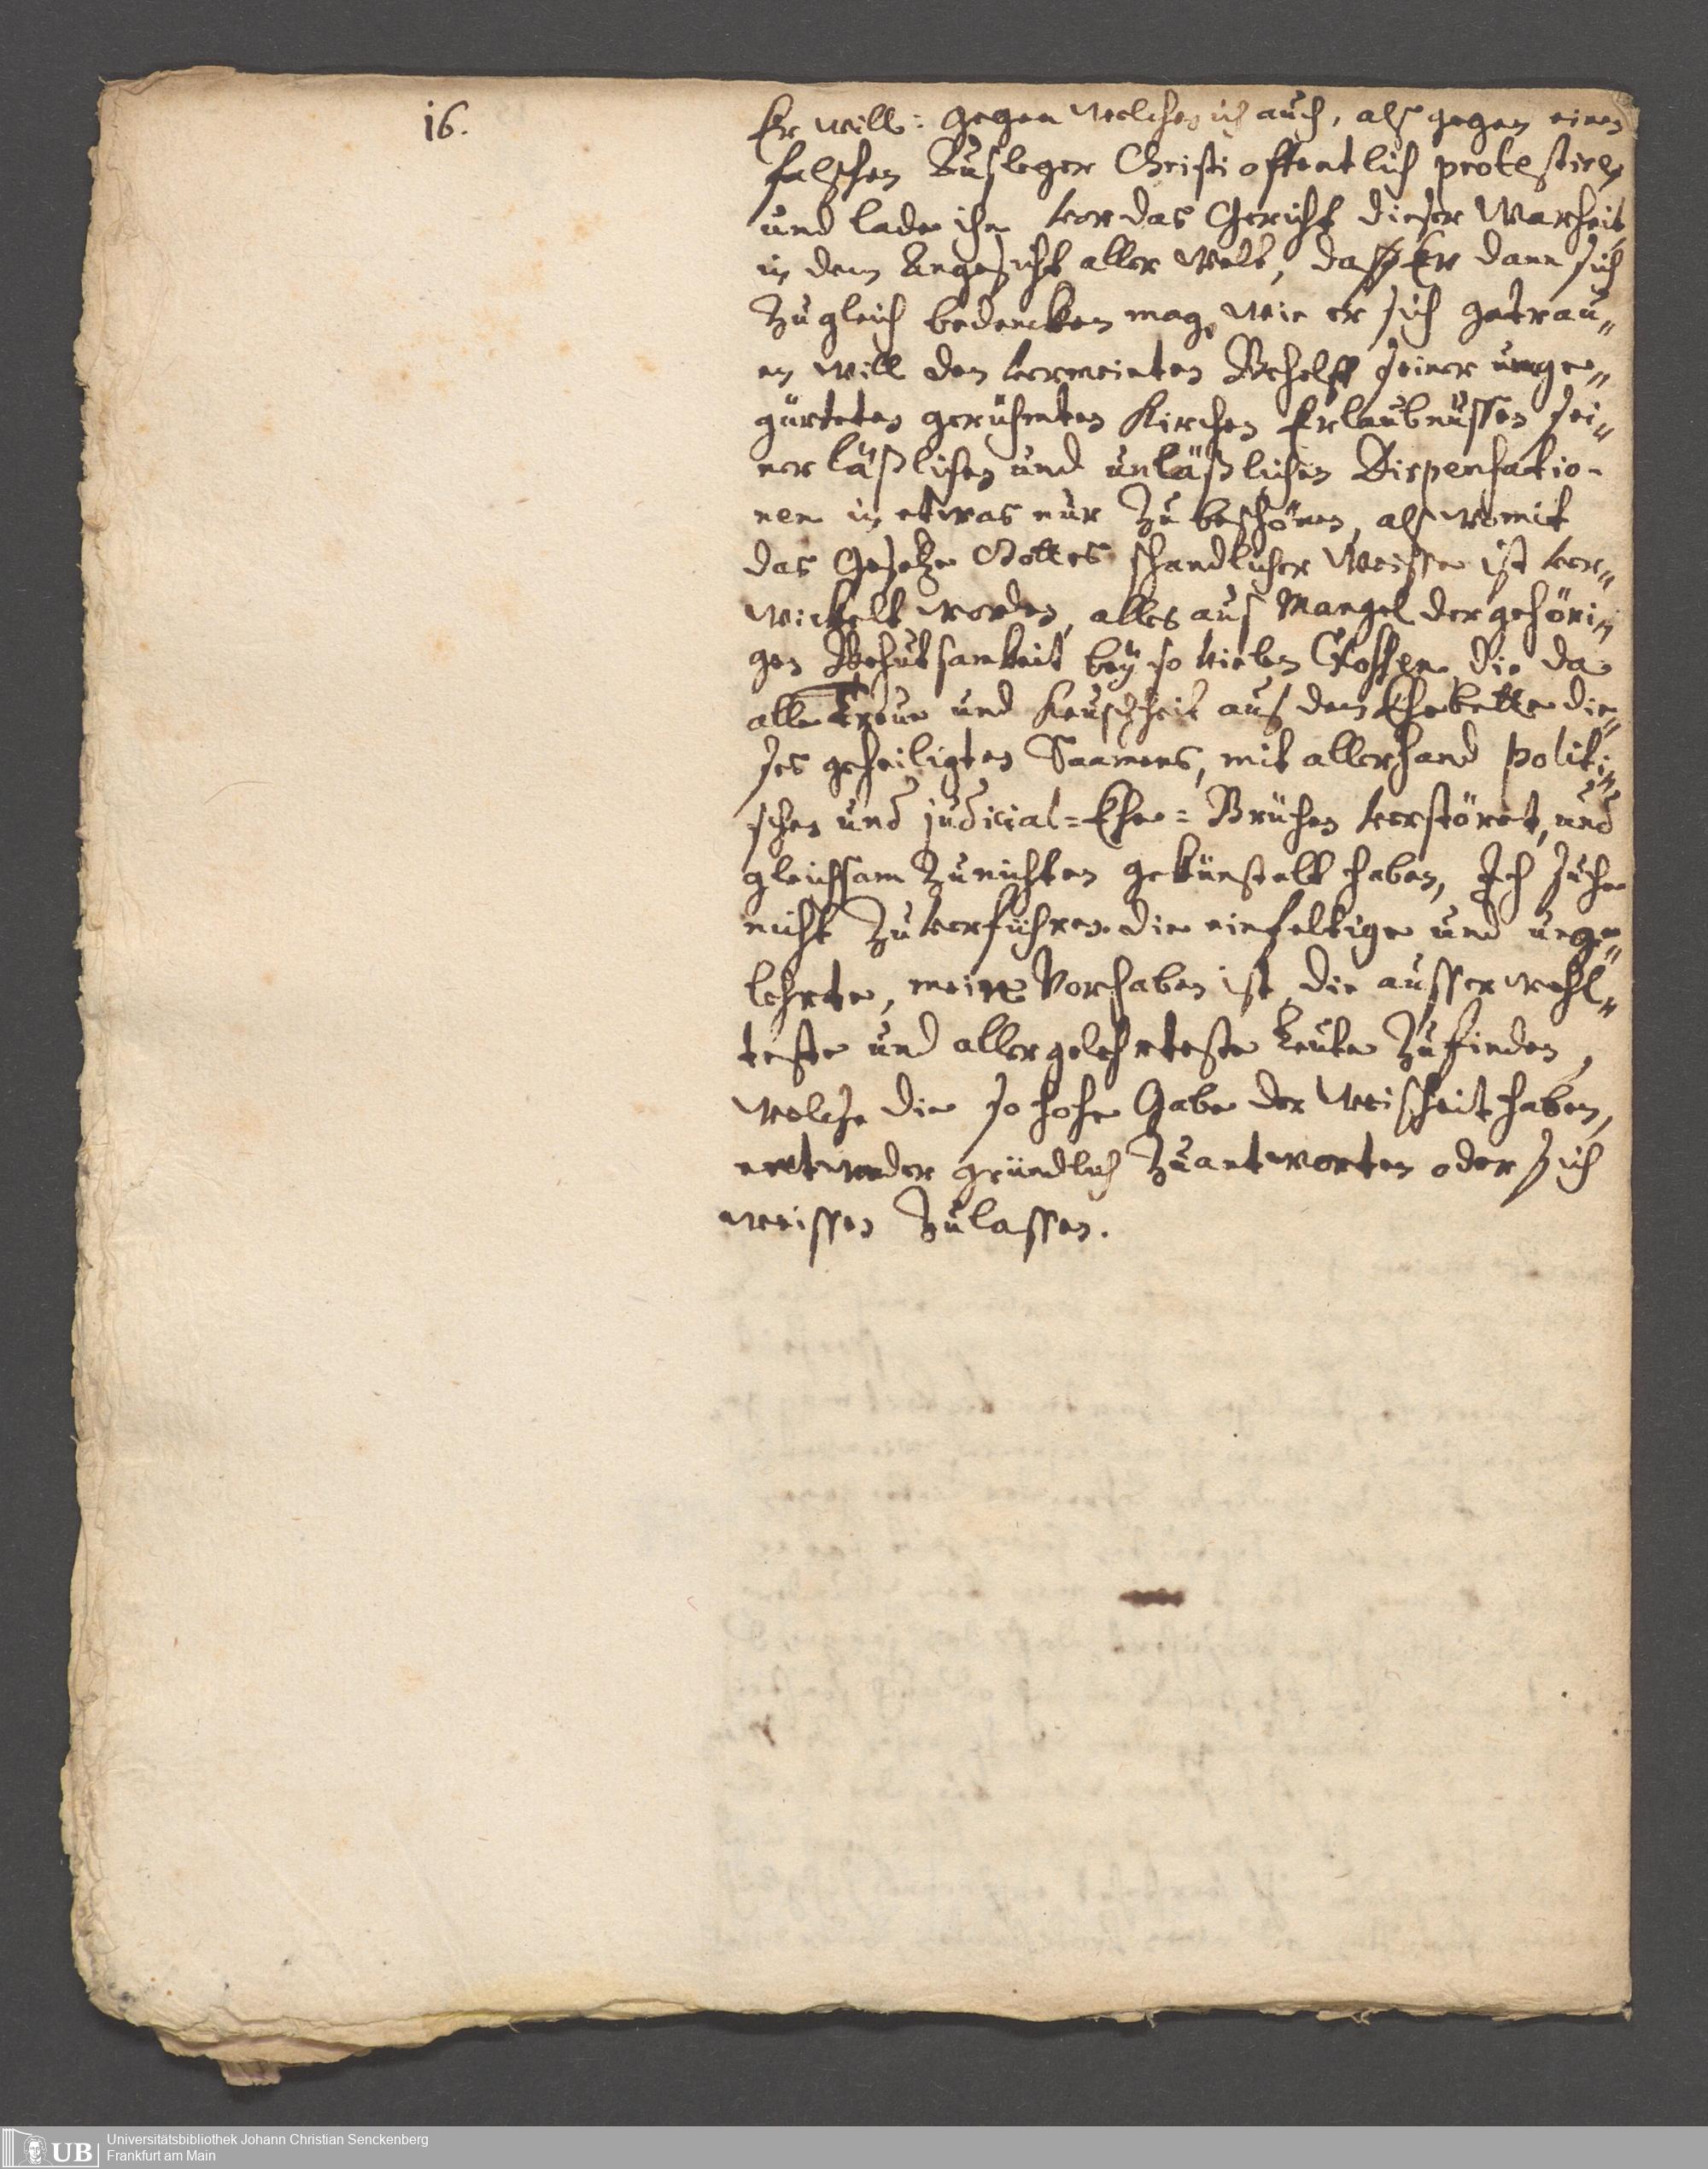 16.
Er will: gegen welches ich auch, alß gegen einen
falschen Außleger Christi offentlich protestire
und lade ihn vor das Gericht dieser Warheit
in dem Angesicht aller Welt, daß Er dann sich
zugleich bedencken mag, wie er sich getrau„
en will den vermeinten Behelff seiner umge„
gürteten gerühmten Kirchen Erlaubnüssen sei„
ner läßlichen und unläßlichen Dispensatio-
nen in etwas nur zu beschönen, alß womit
das Gesetze Gottes schandlicher Weisse ist ver„
wickelt worden, alles auß Mangel der gehöri„
gen Behutsamkeit bey so vielen Glossen, die da
alle Treue und Keuschheit auß dem Ehebette die„
ses geheiligten Saamens, mit allerhand politi„
schen und judicial=Ehe=Brüchen verstöret, und
gleichsam zunichten gekünstelt haben, Ich suche
nicht zuverführen die einfeltige und unge„
lehrte, mein Vorhaben ist, die ausserwehl„
teste und allergelehrteste Leute zufinden,
welche die so hohe Gabe der Weißheit haben,
entweder gründlich zuantworten oder sich
weissen zulassen.
UB
Universitätsbibliothek Johann Christian Senckenberg
Frankfurt am Main